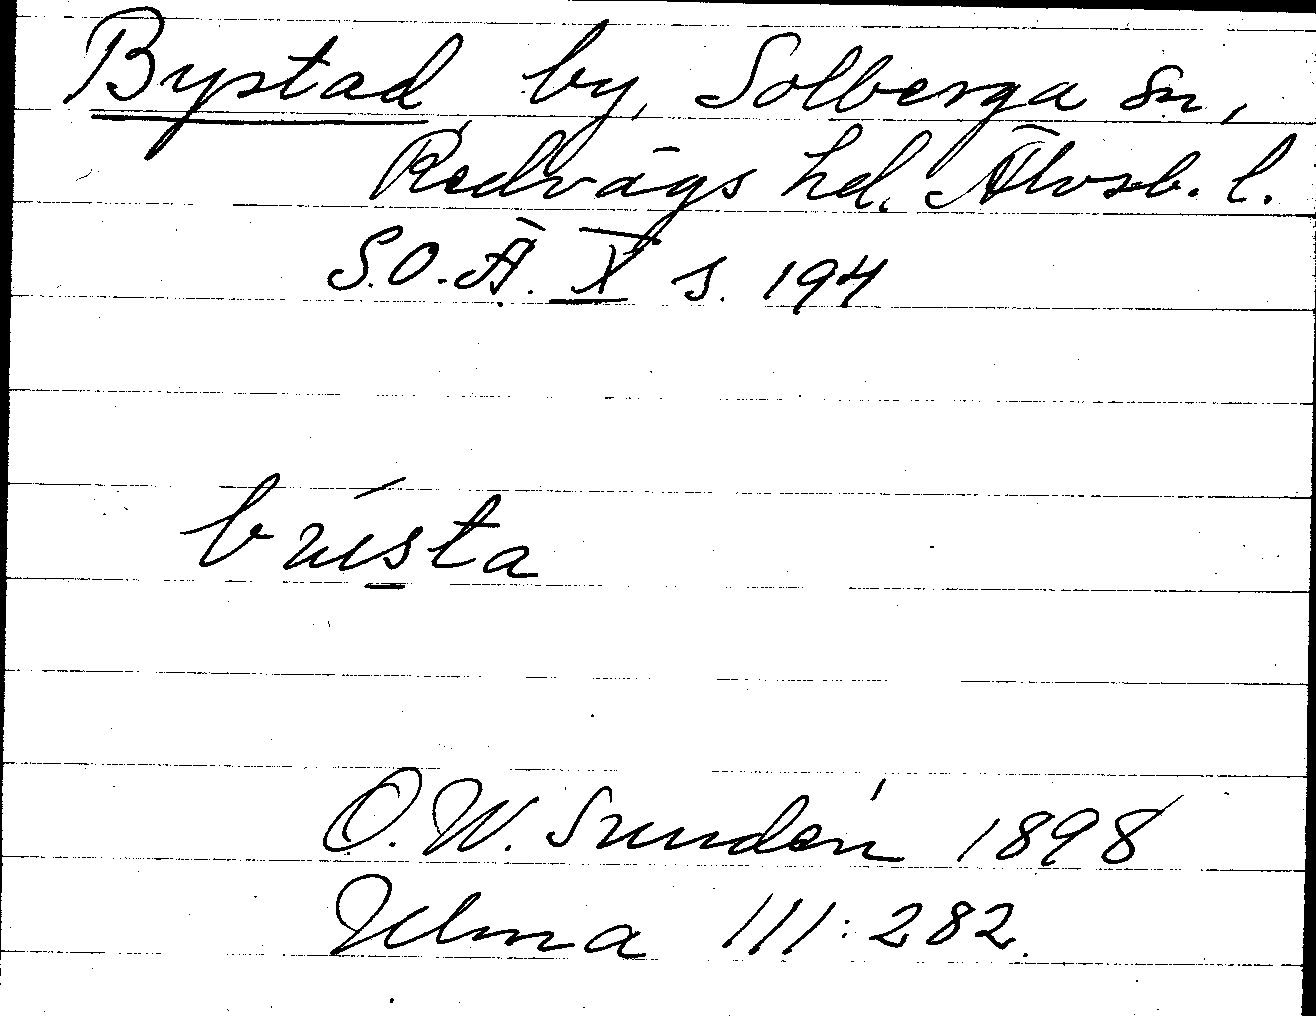 Bystad by, Solberga sn,
Redvägs hd. Älvsb. l.
S.O.Ä. X s. 194
brista
D.W. Sundén 1898
Ulma 111:282.